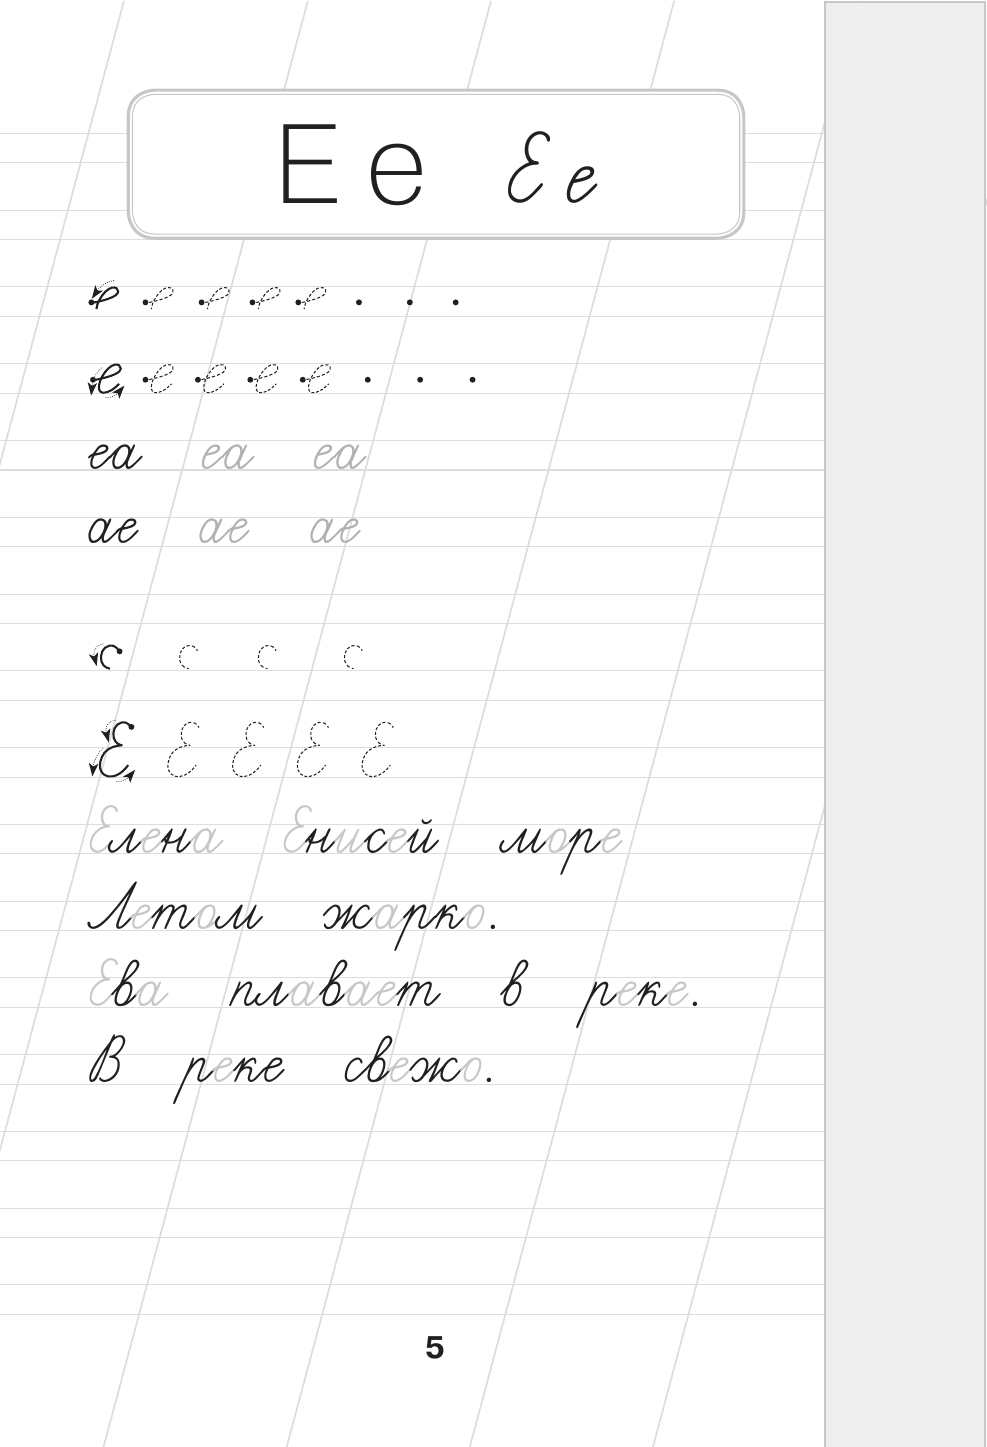 Е е Е е
еа еа еа
ае ае ае
Е Е Е Е Е
Елена Енисей море
Летом жарко.
Ева плавает в реке.
В реке свежо.
5